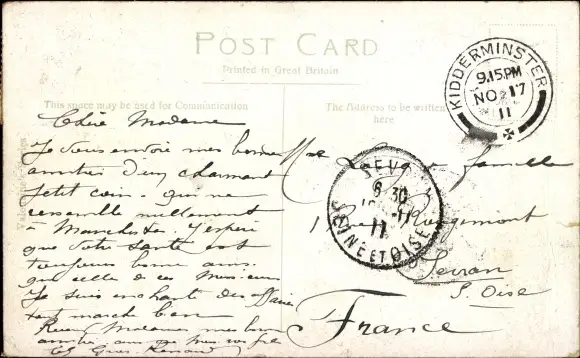 POST CARD
Printed in Great Britain
This space may be used for Communication
The Address to be written
here
KIDDERMINSTER
9.15PM
NO 17
11
Chère Madame
Je vous envoie mes bonnes
amitiés d'un charmant
petit coin. qui ne
ressemble nullement
à Manchester. J'espère
que votre santé est
toujours bonne ainsi
que celle de ces Messieurs
Je suis enchanté des affaires
tout marche bien
Recevez Madame mes bonnes
amitiés
famille
Rougemont
Sevran
S. Oise
France
SEVRAN
6 30
11
SEINE ET OISE